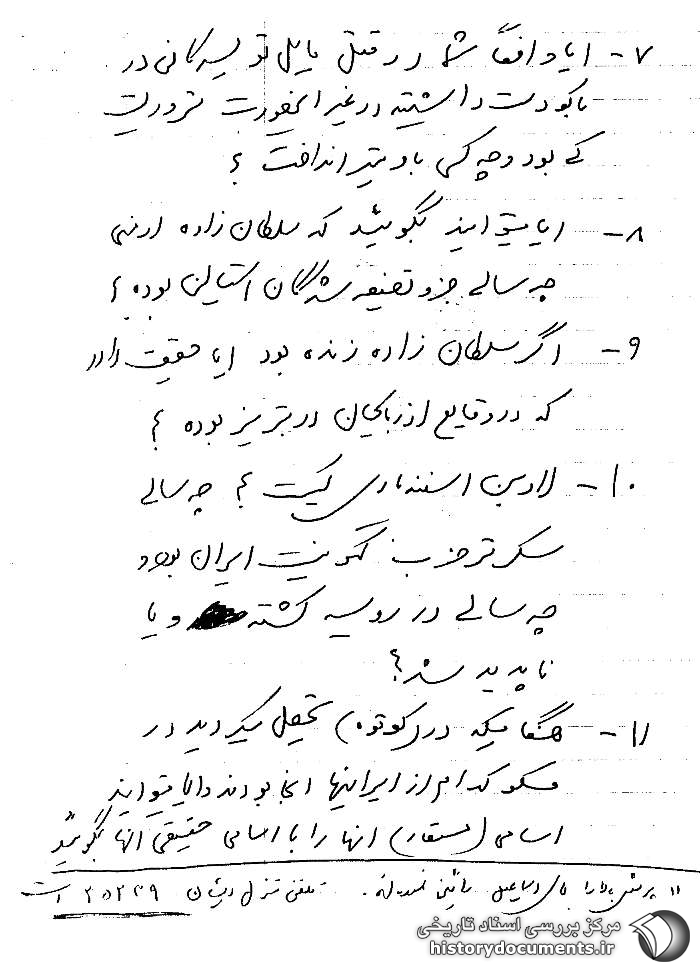 ۷- ایا واقعاً شما در قتل یا پل تو لیسرکانی در
باکو دست داشتید در غیر اینصورت تروریست
کی بود و چه کسی باو تیر انداخت ؟
۸- ایا میتوانید بگوئید که سلطان زاده ارمنی
چه سالی جزو تصفیه شدگان استالین بوده ؟
۹- اگر سلطان زاده زنده بود ایا حقیقت دارد
که در وقایع اذربایجان در تبریز بوده ؟
۱۰- لادبن اسفندیاری کیست ؟ چه سالی
سکرتر حزب کمونیست ایران بود و
چه سالی در روسیه کشته و یا
ناپدید شد؟
۱۱- هنگامیکه در (کوتو) تحصیل میکردید در
مسکو کدام از ایرانیها انجا بودند و ایا میتوانید
اسامی (مستعار) انها را با اسامی حقیقی انها بگوئید
۱۱ پرسش بالا را اقای اسماعیل رائین نموده‌اند. تلفن منزل ایشان ۳۵۲۳۹ است
مرکز بررسی اسناد تاریخی
historydocuments.ir